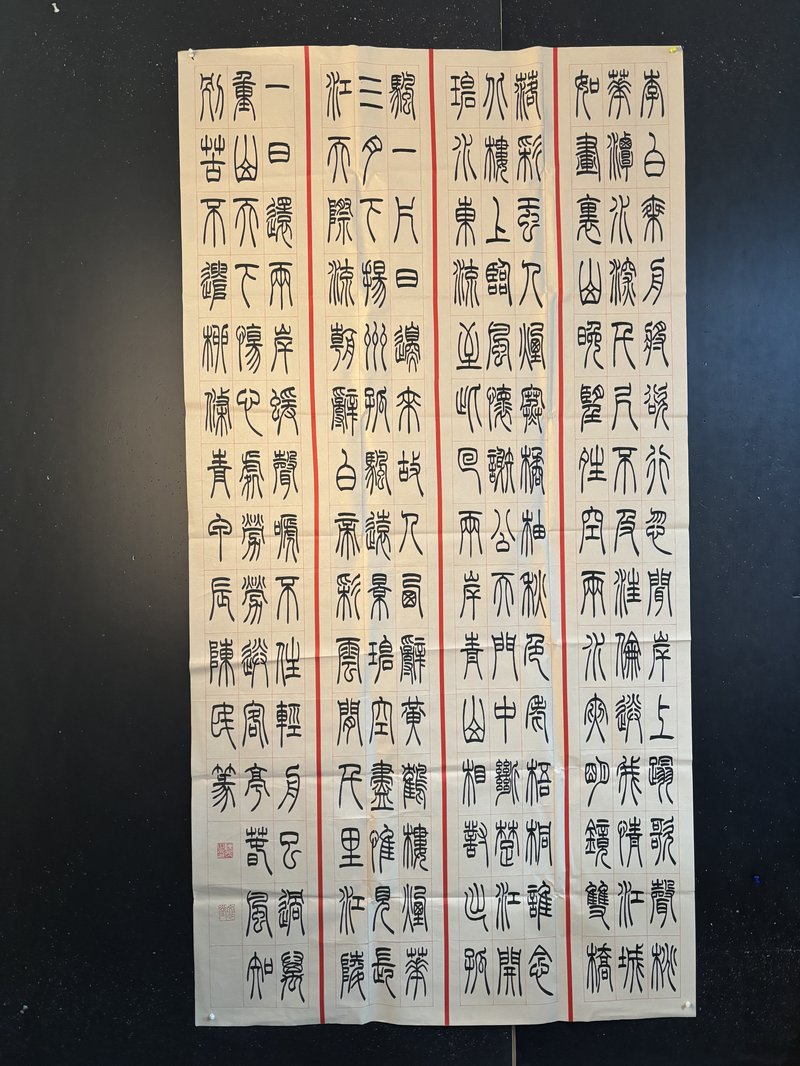 李白乘舟將欲行忽聞岸上蹋歌聲桃
華潭水深千尺不及汪倫送我情江城
如畫裏山晚望晴空兩水夾明鏡雙橋
落彩虹人煙寒橘柚秋色老梧桐誰念
北樓上臨風懷謝公天門中斷楚江開
碧水東流至此回兩岸青山相對出孤
颿一片日邊來故人西辭黃鶴樓煙華
三月下揚州孤颿遠景碧空盡惟見長
江天際流朝辭白帝彩雲間千里江陵
一日還兩岸猨聲嗁不住輕舟已過萬
重山天下傷心處勞勞送客亭春風知
別苦不遣柳條青甲辰陳民篆